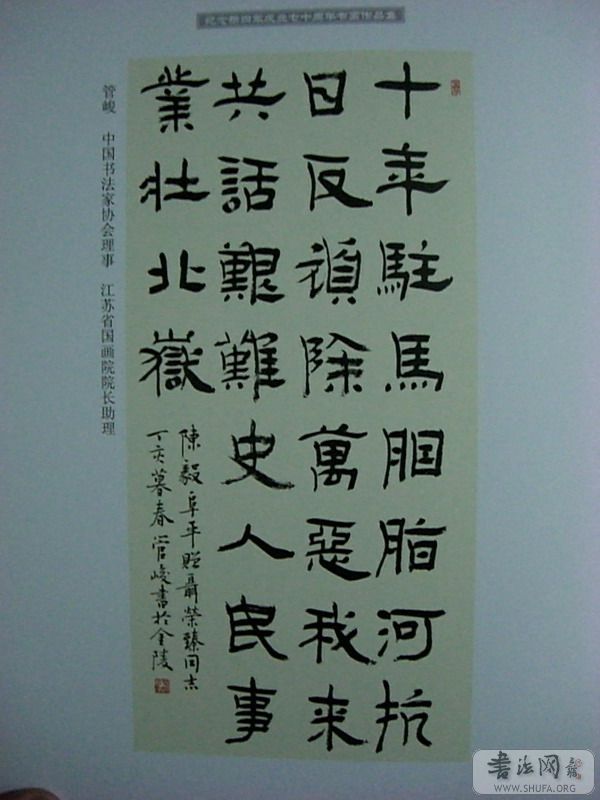 纪念新四军成立七十周年书画作品集
十年駐馬胭脂河抗
日反頑除萬惡我来
共話艱難史人民事
業壮北嶽
陳毅阜平贈聶榮臻同志
丁亥暮春管峻書於金陵
管峻 中国书法家协会理事 江苏省国画院院长助理
书法网
WWW.SHUFA.ORG